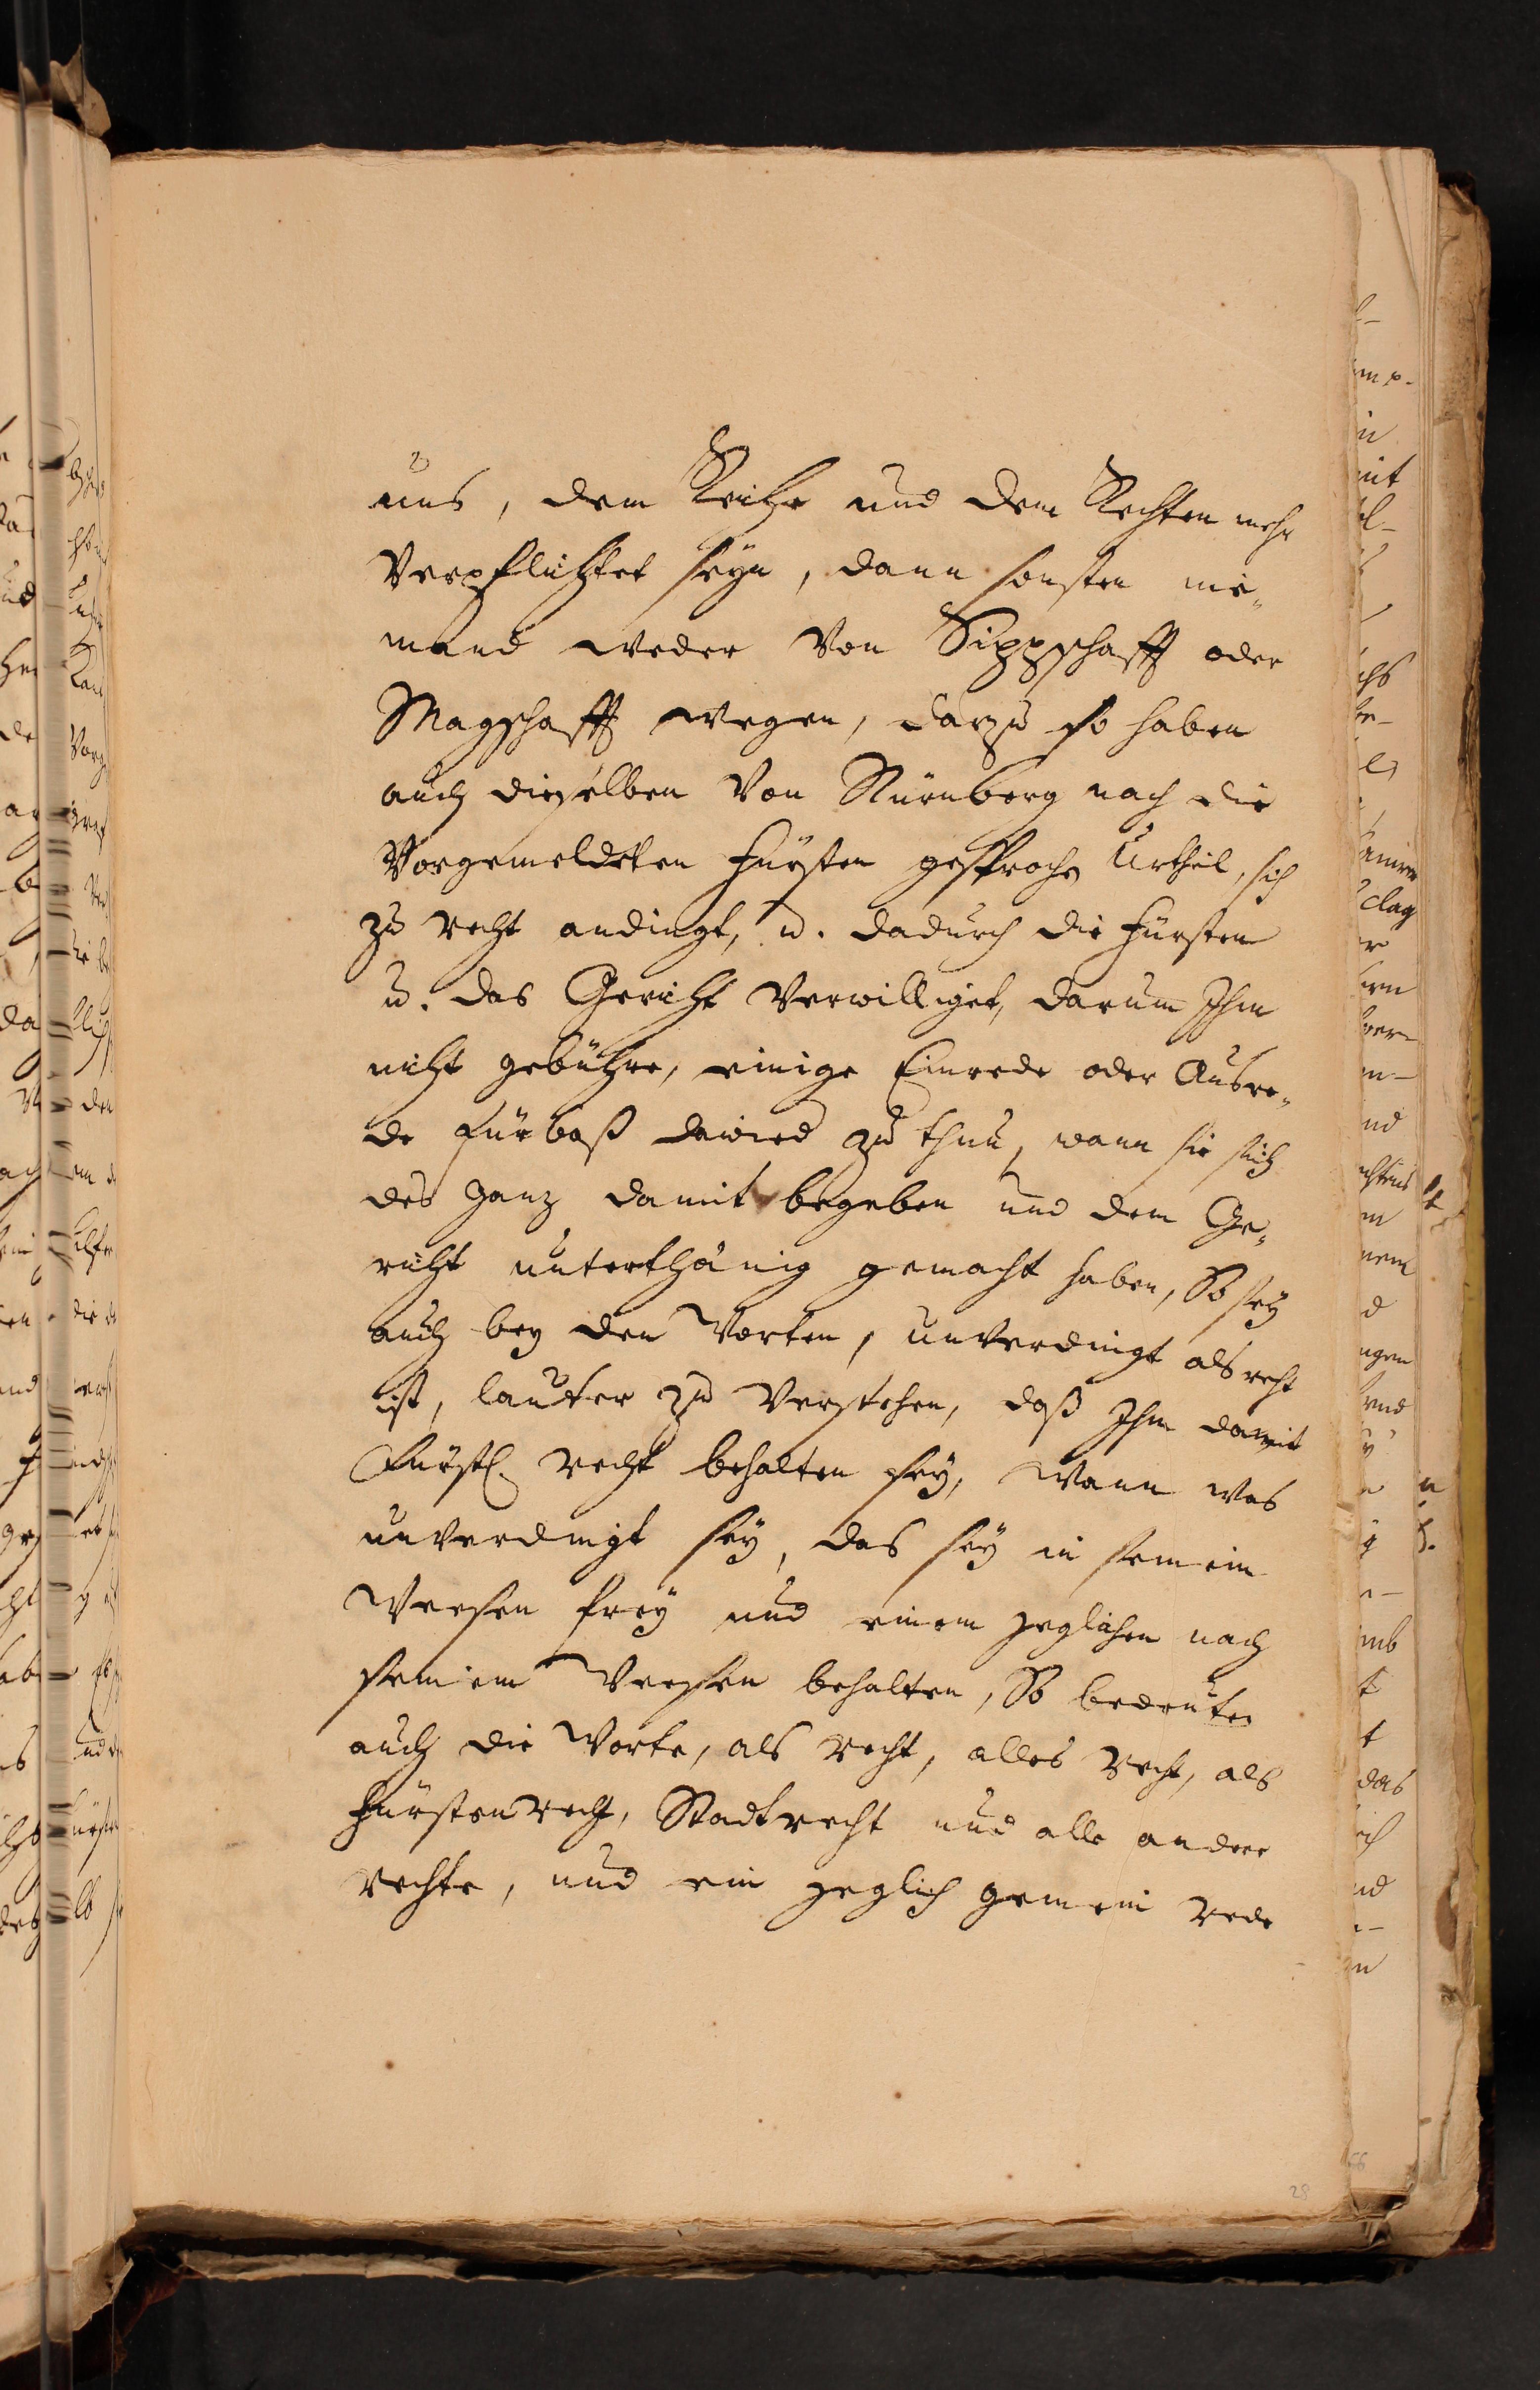 uns, dem Reiche und dem Rechten mehr
Verpflichtet seyn, dann sonsten nie„
mand weder Von Sippschafft oder
Magschafft wegen, darzu so haben
auch dieselben Von Nürnberg nach die
Vorgemeldeten Fürsten gesproche Urthel, sich
zu recht andingt, u. dadurch die Fürsten
u. das Gericht Verwilliget, darum Ihm
nicht gebühre, einige Einrede oder Ausre„
de fürbaß dawied zu thun, wann sie sich
des ganz damit begeben und dem Ge„
richt unterthänig gemacht haben, So sey
auch bey den Worten, unverdingt als recht
ist, lauter zu Verstehen, daß Ihm damit
Fürstl. recht behalten sey, Wann was
unverdingt sey, das sey in seinem
Weesen frey und einem Jeglichen nach
seinem Weesen behalten, So bedeuten
auch die Worte, als recht, alles recht, als
Fürstenrecht, Stadtrecht und alle andere
rechte, und ein Jeglich gemein rede
28